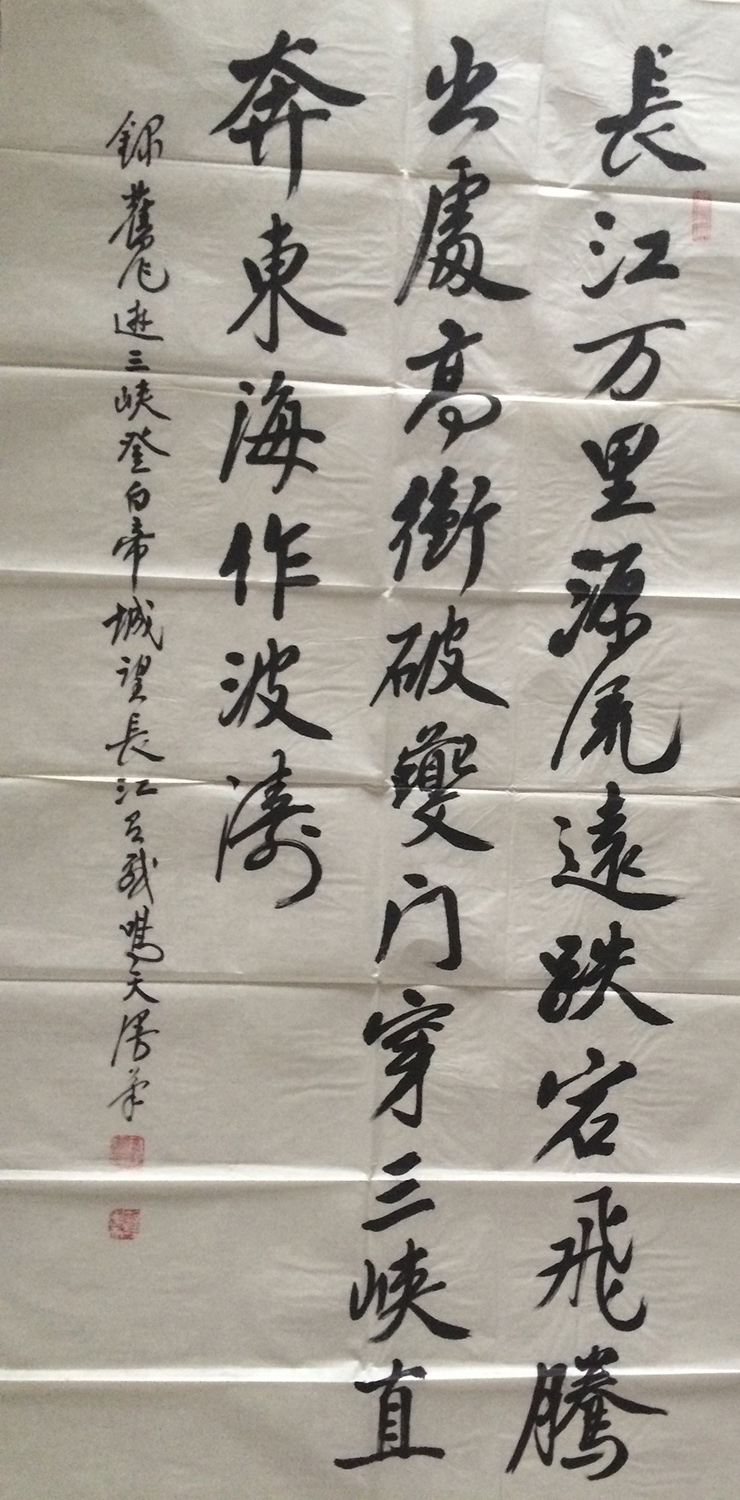 長江万里源尾遠跌宕飛騰
出處高衝破夔门穿三峡直
奔東海作波濤
録舊作遊三峡登白帝城望長江 鳴天 筆